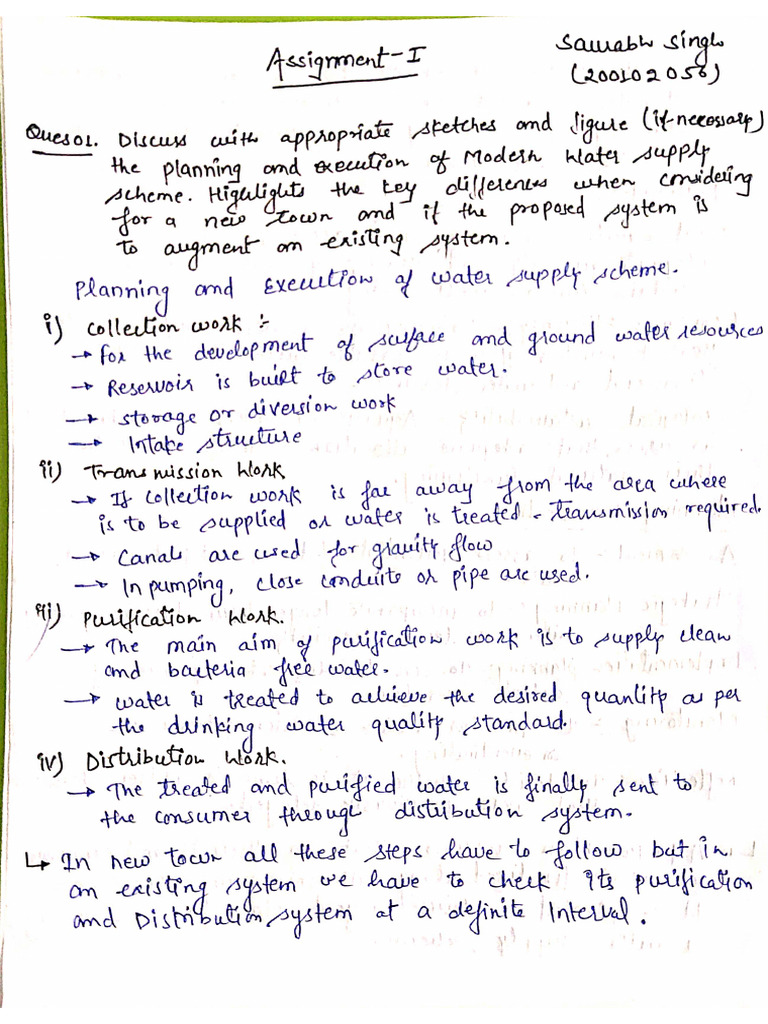 Assignment-I
Saurabh Singh
(200102056)
Ques01. Discuss with appropriate sketches and figure (if necessary)
the planning and execution of Modern Water supply
scheme. Highlights the key differences when considering
for a new town and if the proposed system is
to augment an existing system.
Planning and Execution of water supply scheme.
i) Collection work :-
→ for the development of surface and ground water resources
→ Reservoir is built to store water.
→ Storage or diversion work
→ Intake structure
ii) Transmission Work
→ If collection work is far away from the area where
is to be supplied or water is treated - transmission required.
→ Canals are used for gravity flow
→ In pumping, close conduits or pipe are used.
iii) Purification Work.
→ The main aim of purification work is to supply clean
and bacteria free water.
→ Water is treated to achieve the desired quantity as per
the drinking water quality standard.
iv) Distribution Work.
→ The treated and purified water is finally sent to
the consumer through distribution system.
↳ In new town all these steps have to follow but in
an existing system we have to check its purification
and Distribution system at a definite Interval.